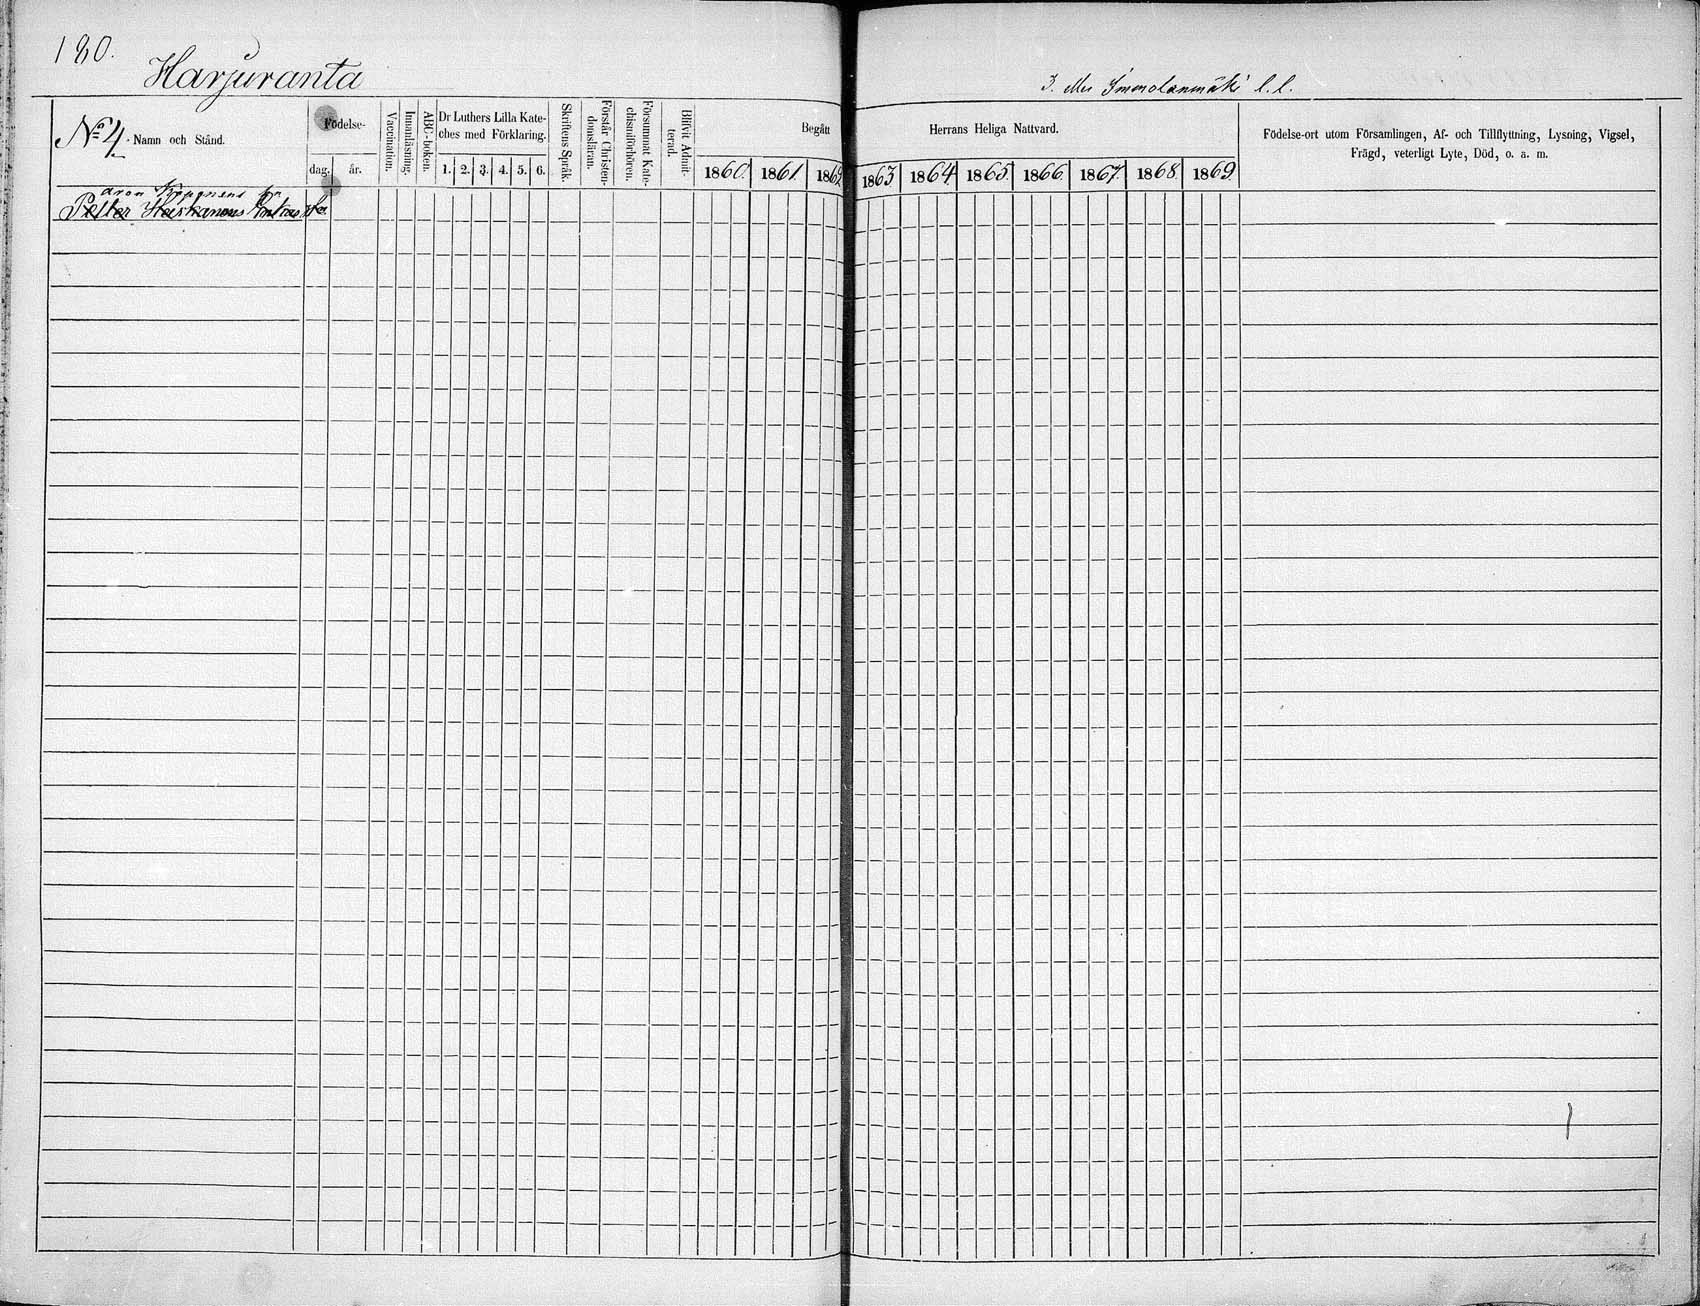 180.
Harjuranta
3. Simonolanmäki l.l.
No 4.
Namn och Stånd.
Födelse-
dag. år.
Vaccination.
Innanläsning.
ABC-boken.
Dr Luthers Lilla Kate-
ches med Förklaring.
1. 2. 3. 4. 5. 6.
Skriftens Språk.
Förstår Christen-
domsläran.
Försummat Kate-
chismiförhören.
Blifvit Admit-
terad.
Begått
1860. 1861 1862
Herrans Heliga Nattvard.
1863 1864 1865 1866 1867 1868 1869
Födelse-ort utom Församlingen, Af- och Tillflyttning, Lysning, Vigsel,
Frägd, veterligt Lyte, Död, o. a. m.
Petter